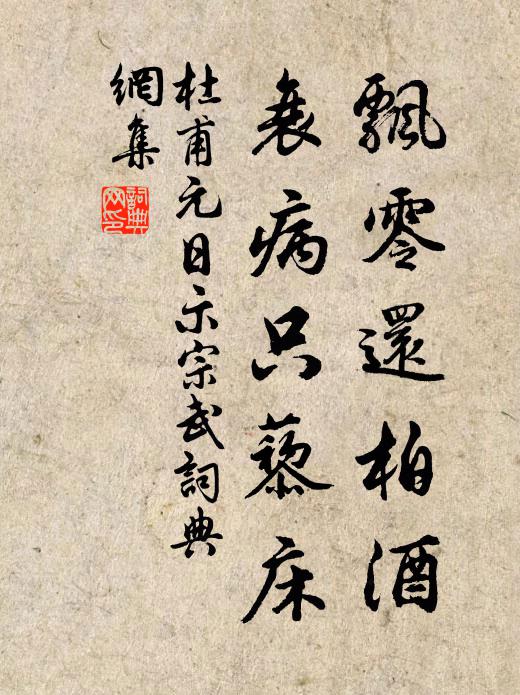 飄零還柏酒
衰病只藜床
杜甫元日示宗武詞典
網集
詞典网印